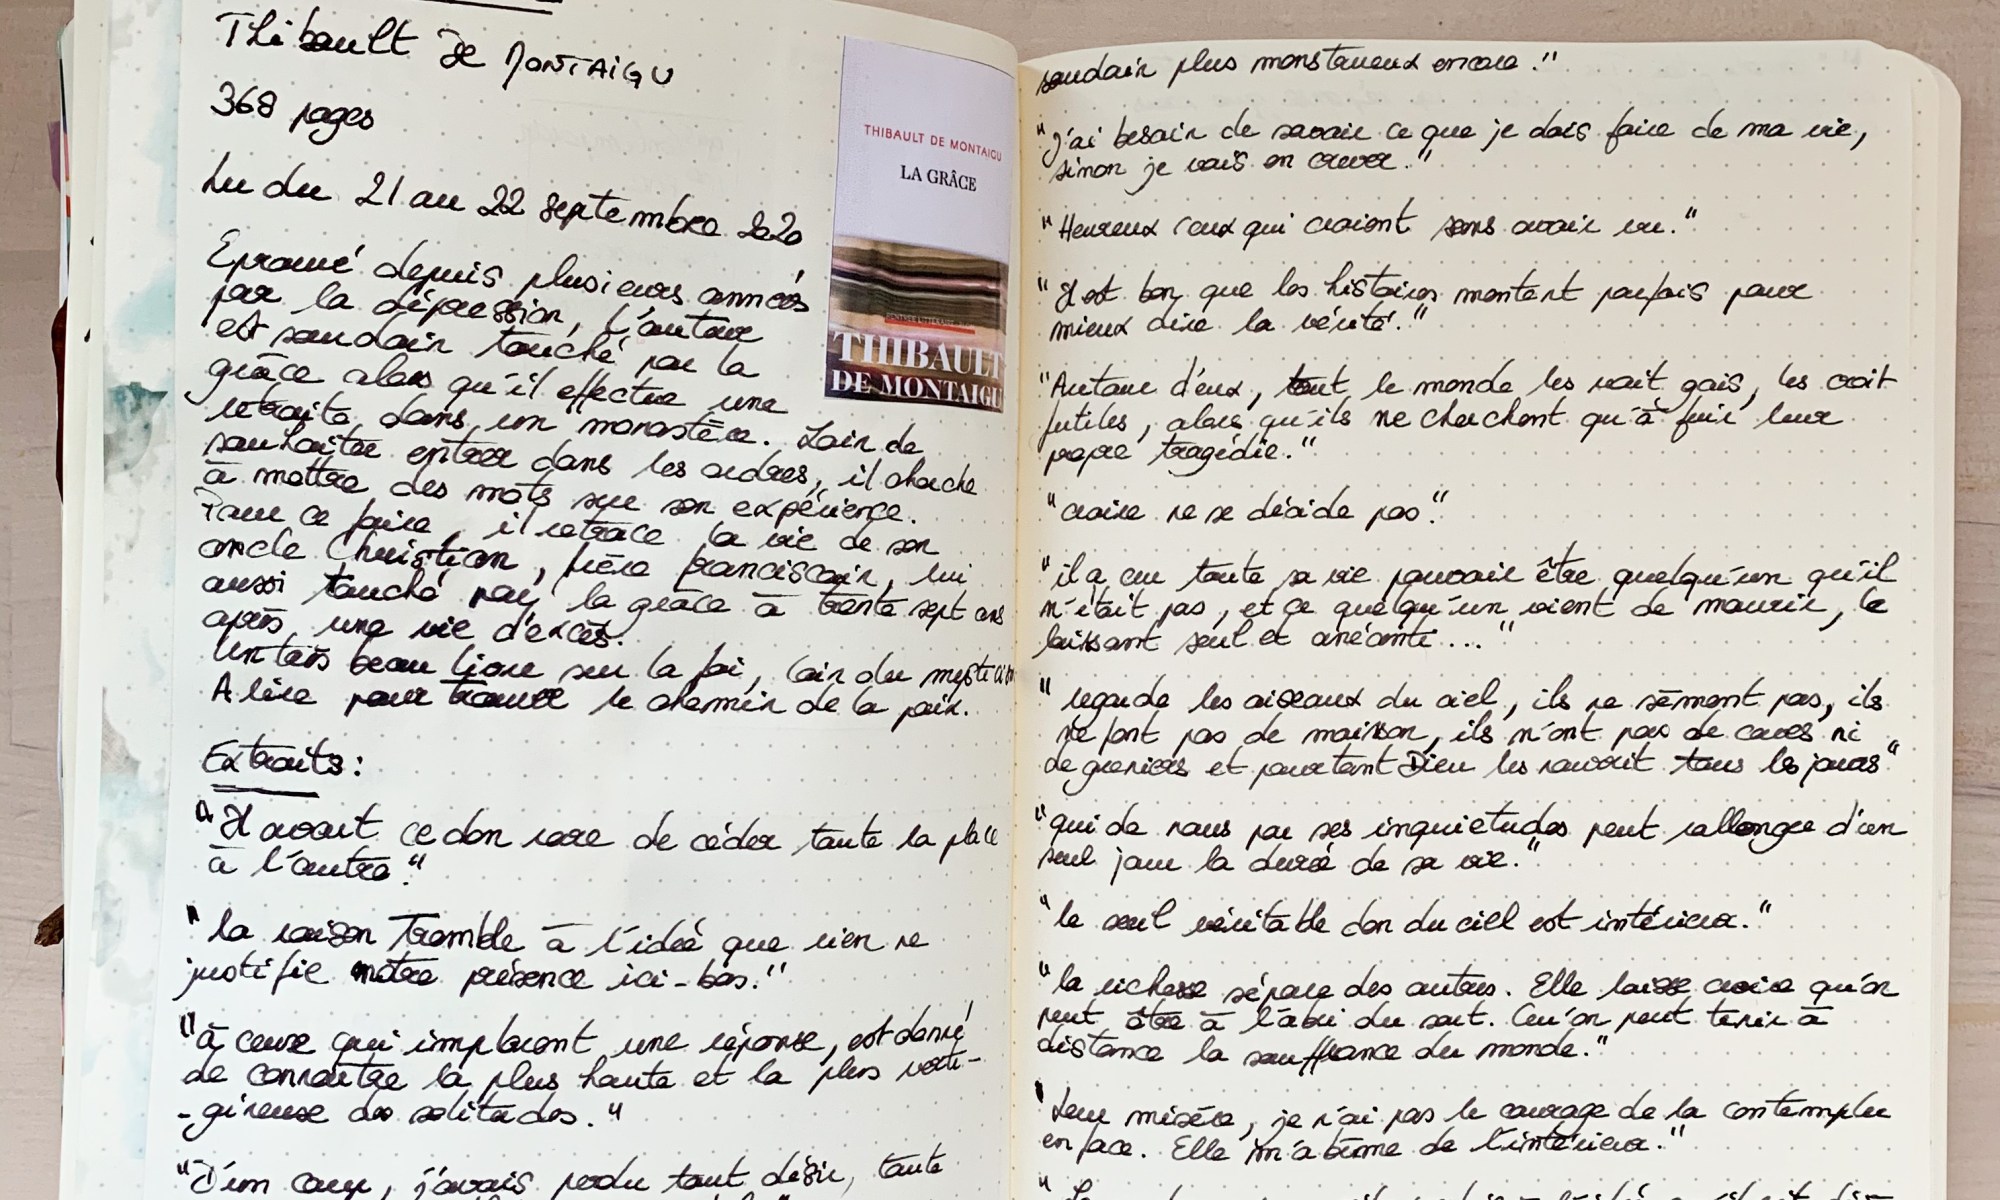 Thibault de MONTAIGU
368 pages
Lu du 21 au 22 septembre 2020
Eprouvé depuis plusieurs années
par la dépression, l'auteur
est soudain touché par la
grâce alors qu'il effectue une
retraite dans un monastère. Loin de
souhaiter entrer dans les ordres, il cherche
à mettre des mots sur son expérience.
Pour ce faire, il retrace la vie de son
oncle Christian, frère franciscain, lui
aussi touché par la grâce à trente sept ans
après une vie d'excès.
Un très beau livre sur la foi, loin du
A lire pour trouver le chemin de la paix.
Extraits :
"Il avait ce don rare de céder toute la place
à l'autre."
"la raison tremble à l'idée que rien ne
justifie notre présence ici-bas."
"à ceux qui implorent une réponse, est donné
de connaître la plus haute et la plus verti-
-gineuse des solitudes."
"D'un coup, j'avais perdu tout désir, toute
THIBAULT DE MONTAIGU
LA GRÂCE
THIBAULT
DE MONTAIGU
soudain plus monstrueux encore."
"j'ai besoin de savoir ce que je dois faire de ma vie,
sinon je vais en crever."
"Heureux ceux qui croient sans avoir vu."
"Il est bon que les histoires mentent parfois pour
mieux dire la vérité."
"Autour d'eux, tout le monde les voit gais, les croit
futiles, alors qu'ils ne cherchent qu'à fuir leur
propre tragédie."
"croire ne se décide pas."
"il a cru toute sa vie pouvoir être quelqu'un qu'il
n'était pas, et ce quelqu'un vient de mourir, le
laissant seul et anéanti..."
"regarde les oiseaux du ciel, ils ne sèment pas, ils
ne font pas de moisson, ils n'ont pas de caves ni
de greniers et pourtant Dieu les nourrit tous les jours"
"qui de nous par ses inquiétudes peut rallonger d'un
seul jour la durée de sa vie."
"le seul véritable don du ciel est intérieur."
"la richesse sépare des autres. Elle laisse croire qu'on
peut être à l'abri du sort. Qu'on peut tenir à
distance la souffrance du monde."
"Leur misère, je n'ai pas le courage de la contempler
en face. Elle m'abîme de l'intérieur."